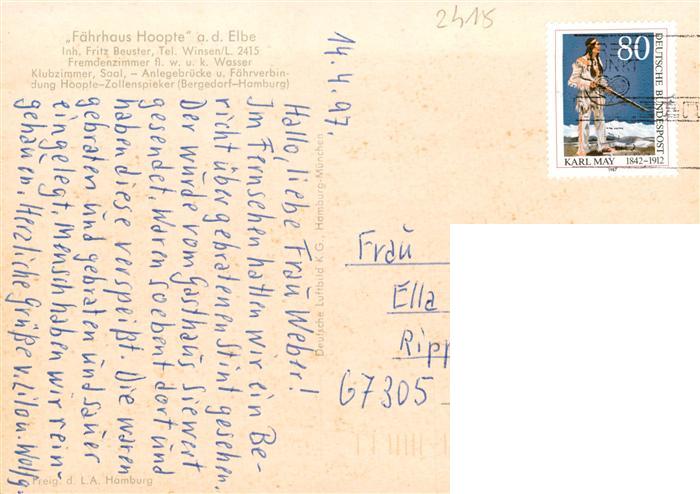 „Fährhaus Hoopte" a. d. Elbe
Inh. Fritz Beuster, Tel. Winsen/L. 2415
Fremdenzimmer fl. w. u. k. Wasser
Klubzimmer, Saal, – Anlegebrücke u. Fährverbin-
dung Hoopte–Zollenspieker (Bergedorf–Hamburg)
2415
14.4.97.
Hallo, liebe Frau Weber!
Im Fernsehen hatten wir ein Be-
richt über gebratenen Stint gesehen.
Der wurde vom Gasthaus Siewert
gesendet. Waren soebent dort und
haben diese verspeißt. Die waren
gebraten und gebraten und sauer
eingelegt. Mensch haben wir rein-
gehäu'n. Herzliche Grüße v. Lilo u. Wolfg.
Deutsche Luftbild K G., Hamburg-München
Freig. d. L.A. Hamburg
80
DEUTSCHE BUNDESPOST
KARL MAY 1842–1912
1987
Frau
Ella
Ripp
67305